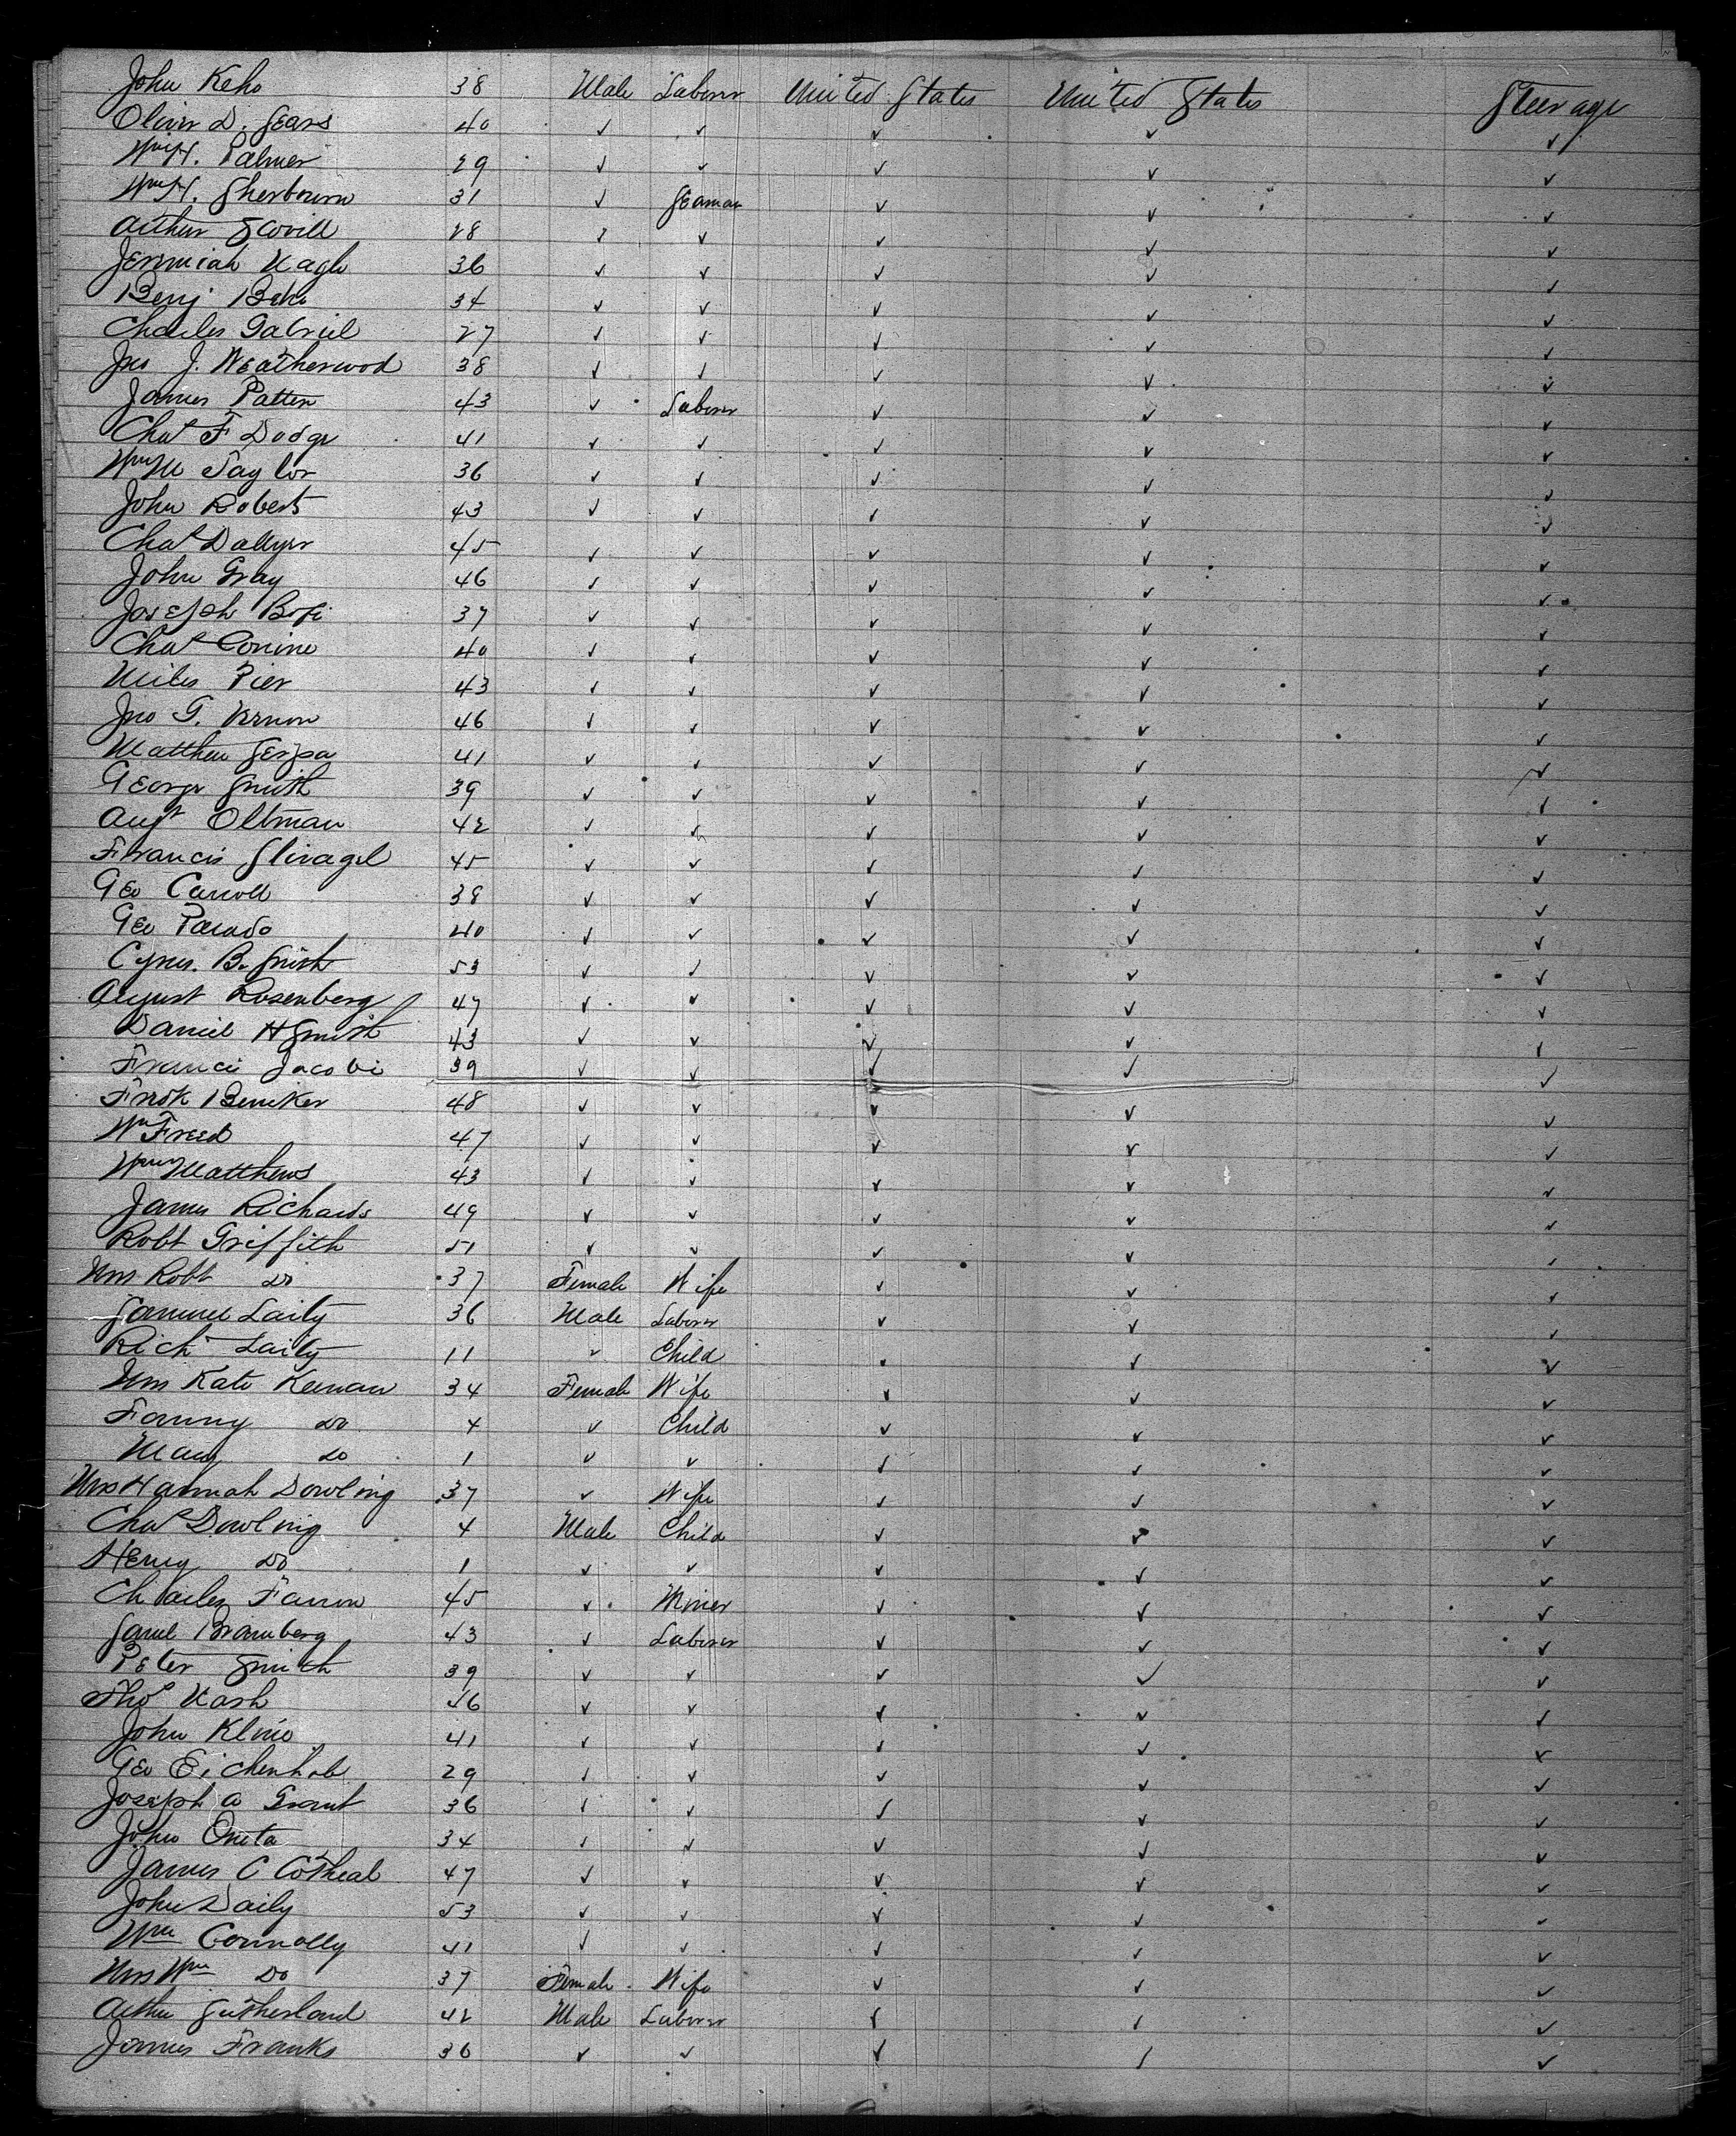 John Keho 38 Male Laborer United States United States Steerage
Oliver D. Sears 40 ✓ ✓ ✓ ✓ ✓
Wm H. Palmer 29 ✓ ✓ ✓ ✓ ✓
Wm H. Sherbourn 31 ✓ Seaman ✓ ✓ ✓
Arthur Scovill 28 ✓ ✓ ✓ ✓ ✓
Jeremiah Nagle 36 ✓ ✓ ✓ ✓ ✓
Benj 34 ✓ ✓ ✓ ✓ ✓
Charles Gabriel 27 ✓ ✓ ✓ ✓ ✓
Jno J. Weatherwood 38 ✓ ✓ ✓ ✓ ✓
James Patten 43 ✓ Laborer ✓ ✓ ✓
Chas F Dodge 41 ✓ ✓ ✓ ✓ ✓
Wm M Taylor 36 ✓ ✓ ✓ ✓ ✓
John Roberts 43 ✓ ✓ ✓ ✓ ✓
Chas 45 ✓ ✓ ✓ ✓ ✓
John Gray 46 ✓ ✓ ✓ ✓ ✓
Joseph 37 ✓ ✓ ✓ ✓ ✓
Chas Conine 40 ✓ ✓ ✓ ✓ ✓
Miles Pier 43 ✓ ✓ ✓ ✓ ✓
Jno G. Vernon 46 ✓ ✓ ✓ ✓ ✓
Matthew 41 ✓ ✓ ✓ ✓ ✓
George Smith 39 ✓ ✓ ✓ ✓ ✓
Augt Oltman 42 ✓ ✓ ✓ ✓ ✓
Francis 45 ✓ ✓ ✓ ✓ ✓
Geo Carroll 38 ✓ ✓ ✓ ✓ ✓
Geo 40 ✓ ✓ ✓ ✓ ✓
Cyrus B. Smith 53 ✓ ✓ ✓ ✓ ✓
August Rosenberg 47 ✓ ✓ ✓ ✓ ✓
Daniel H Smith 43 ✓ ✓ ✓ ✓ ✓
Francis Jacobi 39 ✓ ✓ ✓ ✓ ✓
Fredk Beniker 48 ✓ ✓ ✓ ✓ ✓
Wm Freed 47 ✓ ✓ ✓ ✓ ✓
Wm Matthews 43 ✓ ✓ ✓ ✓ ✓
James Richards 49 ✓ ✓ ✓ ✓ ✓
Robt Griffith 51 ✓ ✓ ✓ ✓ ✓
Mrs Robt Do 37 Female Wife ✓ ✓ ✓
Samuel Laity 36 Male Laborer ✓ ✓ ✓
Rich Laity 11 ✓ Child ✓ ✓ ✓
Mrs Kate Keenan 34 Female Wife ✓ ✓ ✓
Fanny Do 4 ✓ Child ✓ ✓ ✓
Mary Do 1 ✓ ✓ ✓ ✓ ✓
Mrs Hannah Dowling 37 ✓ Wife ✓ ✓ ✓
Chas Dowling 4 Male Child ✓ ✓ ✓
Henry Do 1 ✓ ✓ ✓ ✓ ✓
Charles Farren 45 ✓ Miner ✓ ✓ ✓
Saml Bramberg 43 ✓ Laborer ✓ ✓ ✓
Peter Smith 39 ✓ ✓ ✓ ✓ ✓
Thos Nash 46 ✓ ✓ ✓ ✓ ✓
John Kline 41 ✓ ✓ ✓ ✓ ✓
Geo Eichenhob 29 ✓ ✓ ✓ ✓ ✓
Joseph A Grant 36 ✓ ✓ ✓ ✓ ✓
John Oneta 34 ✓ ✓ ✓ ✓ ✓
James C Cotheal 47 ✓ ✓ ✓ ✓ ✓
John Daily 53 ✓ ✓ ✓ ✓ ✓
Wm Connolly 41 ✓ ✓ ✓ ✓ ✓
Mrs Wm Do 37 Female Wife ✓ ✓ ✓
Arthur Sutherland 42 Male Laborer ✓ ✓ ✓
James Franks 36 ✓ ✓ ✓ ✓ ✓